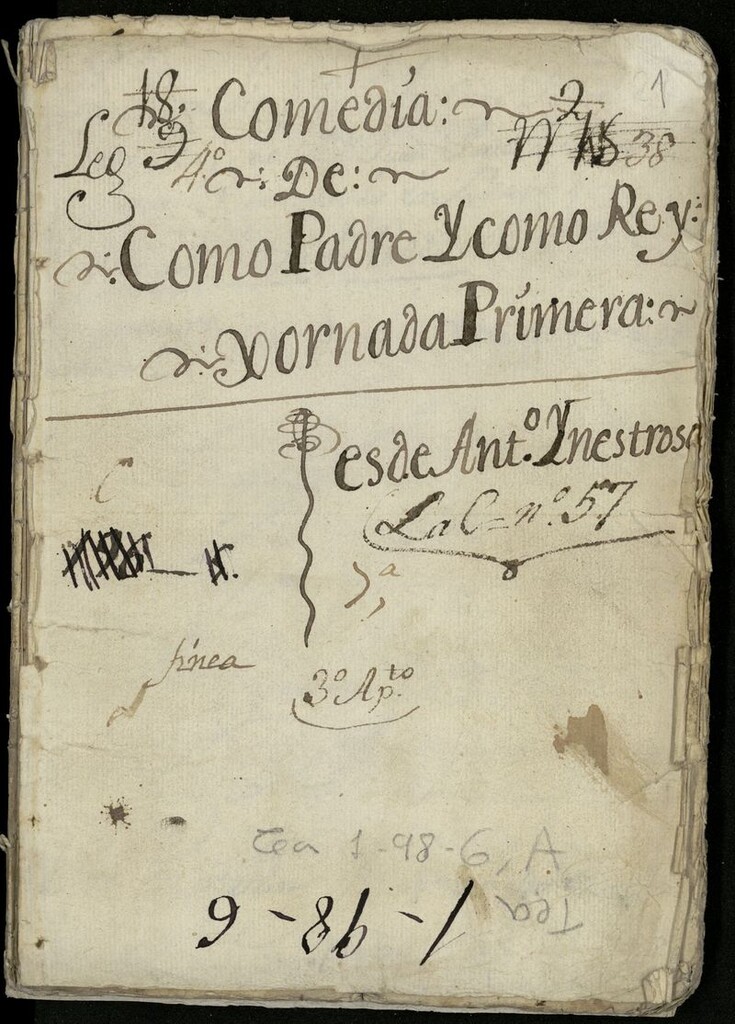 21
18. Comedia: 2
Leg 9 4º De: N 15 38
Como Padre Y como Rey:
Jornada Primera:
Es de Antº. Ynestrosa
La C= nº. 57
1ª
3º Ap.to
Tea 1-98-6, A
Tea
1-98-6